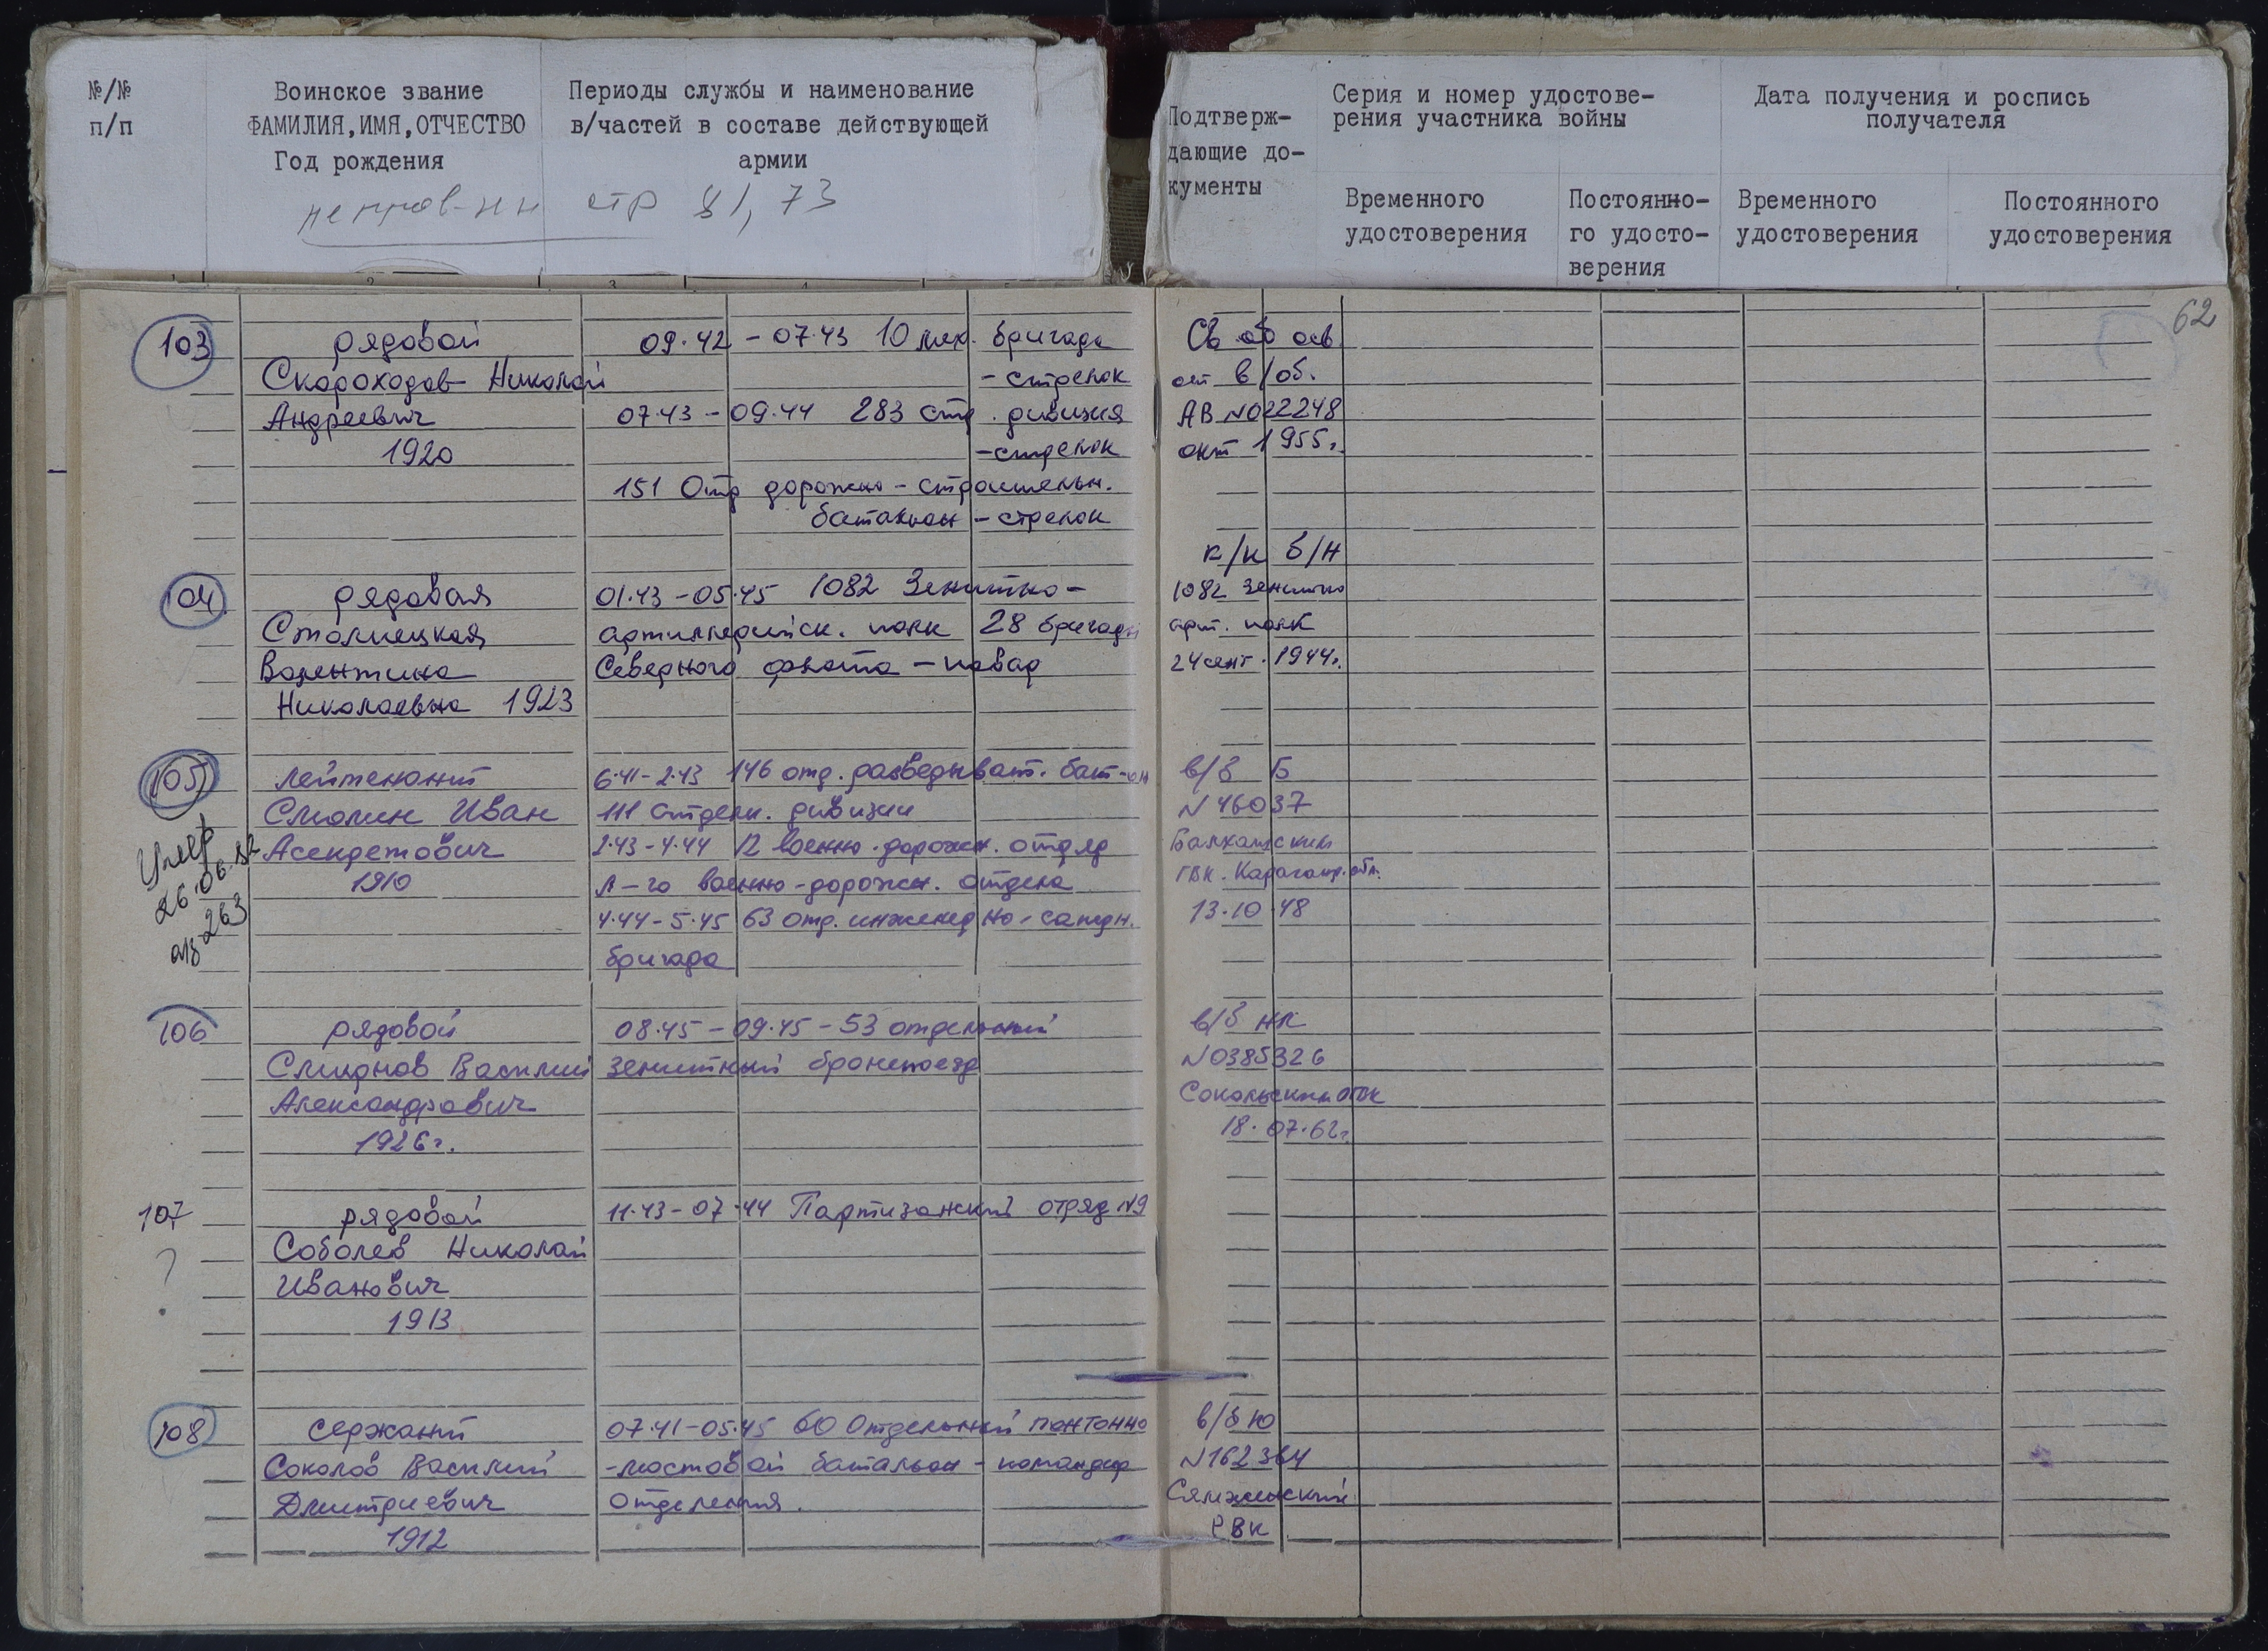 №/№
п/п
Воинское звание
ФАМИЛИЯ,ИМЯ,ОТЧЕСТВО
Год рождения
Периоды службы и наименование
в/частей в составе действующей
армии
стр 81, 73
Подтверж-
дающие до-
кументы
Серия и номер удостове-
рения участника войны
Временного
удостоверения
Постоянно-
го удосто-
верения
Дата получения и роспись
получателя
Временного
удостоверения
Постоянного
удостоверения
62
103
рядовой
Скороходов Николай
Андреевич
1920
09.42 - 07.43 10 мех. бригада
- стрелок
07.43 - 09.44 283 стр. дивизия
- стрелок
151 Отд дорожно - строительн.
батальон - стрелок
Св об осв.
от в/об.
АВ №022248
окт 1955г.
104
рядовая
Столицкая
Валентина
Николаевна 1923
01.43 - 05.45 1082 Зенитно-
артиллерийск. полк 28 бригады
Северного флота - повар
к/к б/н
1082 зенитно
арт. полк
24 сент. 1944г.
105
Умер
26.06.82
263
лейтенант
Смолин Иван
Асендетович
1910
6.41 - 2.43 146 отд. разведыват. бат-он
111 стрелк. дивизии
2.43 - 4.44 12 военно-дорожн. отряд
Л-го военно-дорожн. отдела
4.44 - 5.45 63 отд. инженерно-саперн.
бригада
в/б Б
№ 46037
Балхашским
ГВК. Караганд. обл.
13.10.48
106
рядовой
Смирнов Василий
Александрович
1926г.
08.45 - 09.45 - 53 отдельный
зенитный бронепоезд
в/б НК
№0385326
Сокольским ОВК
18.07.62г.
107
?
рядовой
Соболев Николай
Иванович
1913
11.43 - 07.44 Партизанский отряд №9
108
сержант
Соколов Василий
Дмитриевич
1912
07.41 - 05.45 60 Отдельный понтонно
-мостовой батальон - командир
отделения.
в/б Ю
№162364
Сямженский
РВК